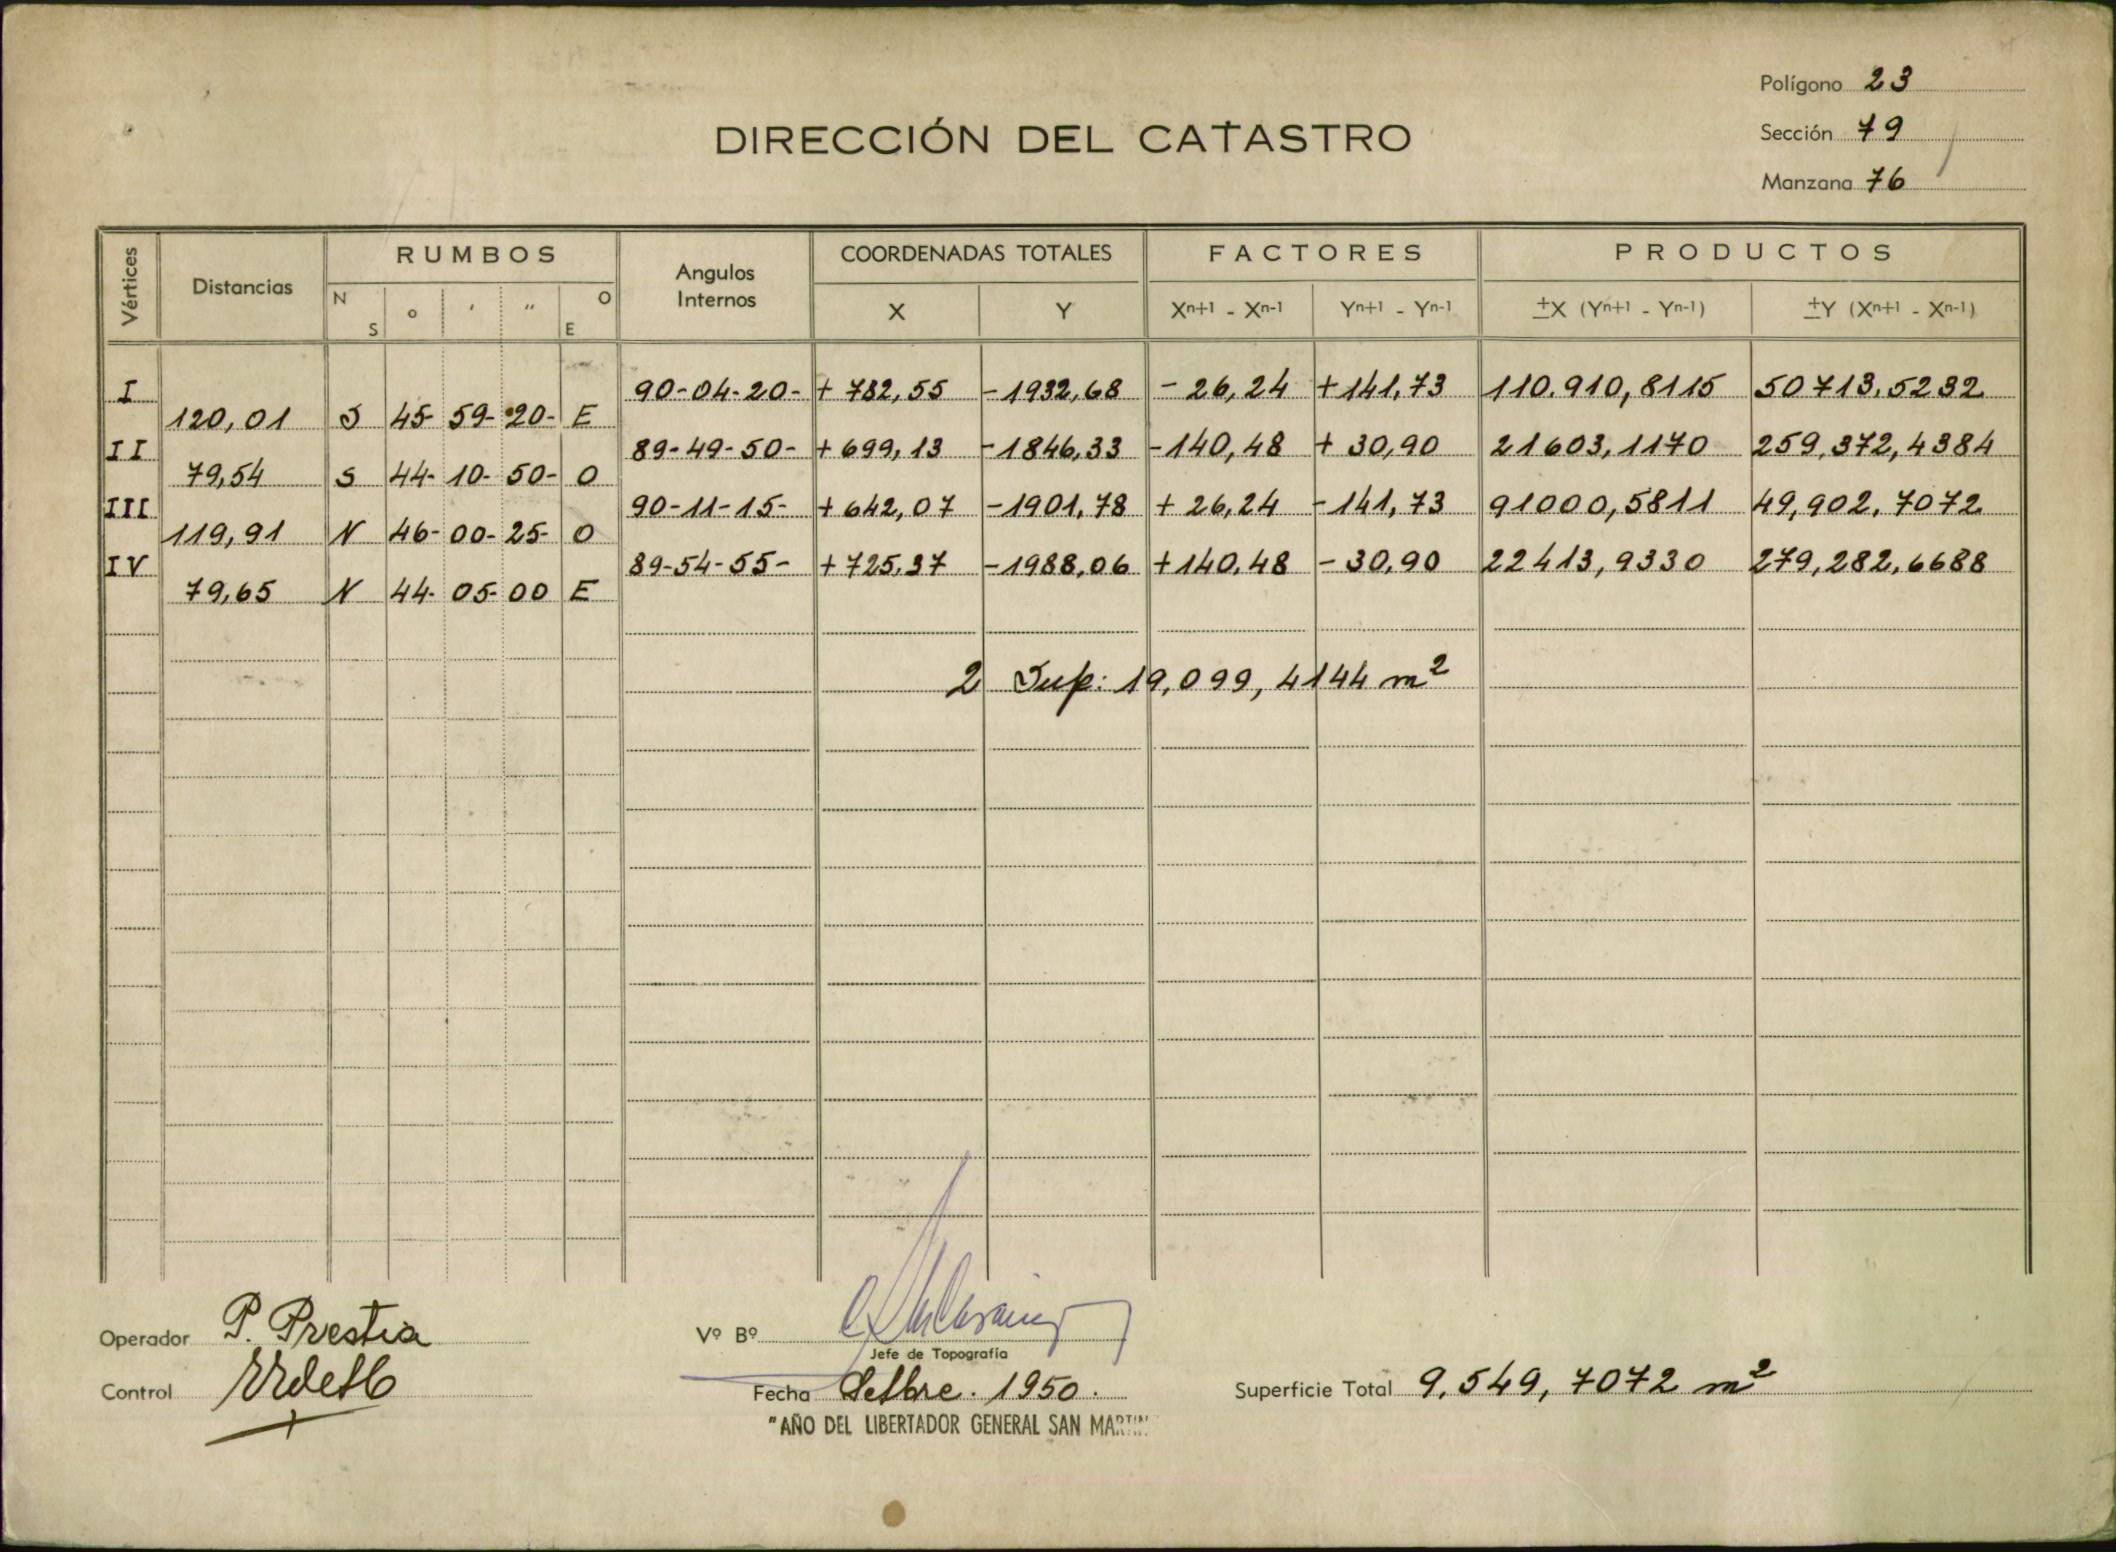 Polígono 23
DIRECCIÓN DEL CATASTRO
Sección 79
Manzana 76
Vértices Distancias RUMBOS Angulos Internos COORDENADAS TOTALES FACTORES PRODUCTOS
N S ° ' " O E X Y Xn+1 - Xn-1 Yn+1 - Yn-1 ±X (Yn+1 - Yn-1) ±Y (Xn+1 - Xn-1)
I 90-04-20- +782,55 -1932,68 -26,24 +141,73 110.910,8115 50713.5232
120,01 S 45- 59- 20- E
II 89-49-50- +699,13 -1846,33 -140,48 +30,90 21603,1170 259,372,4384
79,54 S 44- 10- 50- O
III 90-11-15- +642,07 -1901,78 +26,24 -141,73 91000,5811 49,902,7072
119,91 N 46- 00- 25- O
IV 89-54-55- +725,37 -1988,06 +140,48 -30,90 22413,9330 279,282,6688
79,65 N 44- 05- 00 E
2 Sup: 19,099,4144 m²
Operador P. Prestia
Vº Bº
Jefe de Topografía
Control
Fecha Setbre. 1950.
Superficie Total 9.549,7072 m²
"AÑO DEL LIBERTADOR GENERAL SAN MARTIN"